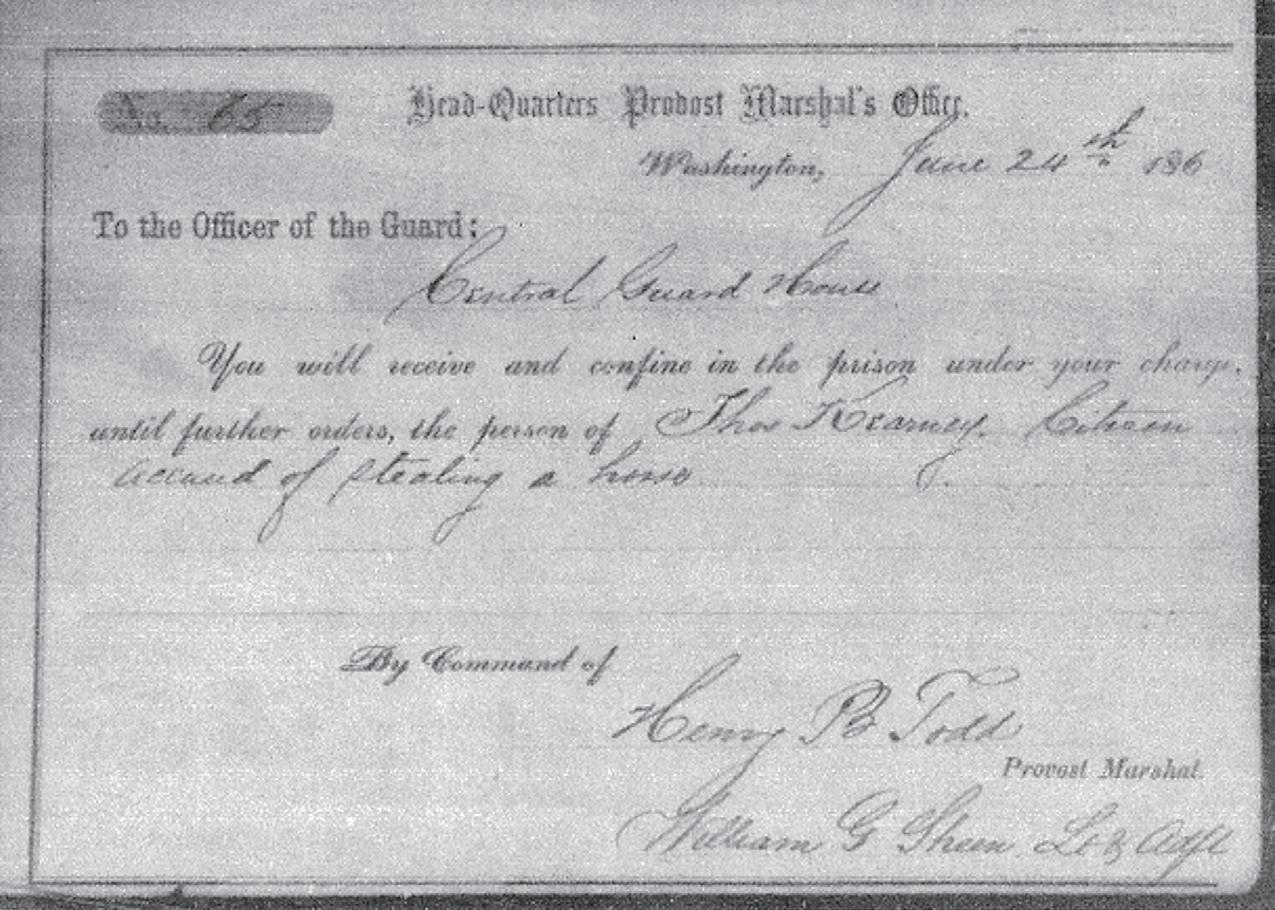 No. 65
Head-Quarters Provost Marshal's Office,
Washington, June 24th 186
To the Officer of the Guard:
Central Guard House
You will receive and confine in the prison under your charge,
until further orders, the person of Thos Kearney. Citizen
accused of stealing a horse
By Command of
Henry B Todd
Provost Marshal.
William G Sheen Lt & Adjt